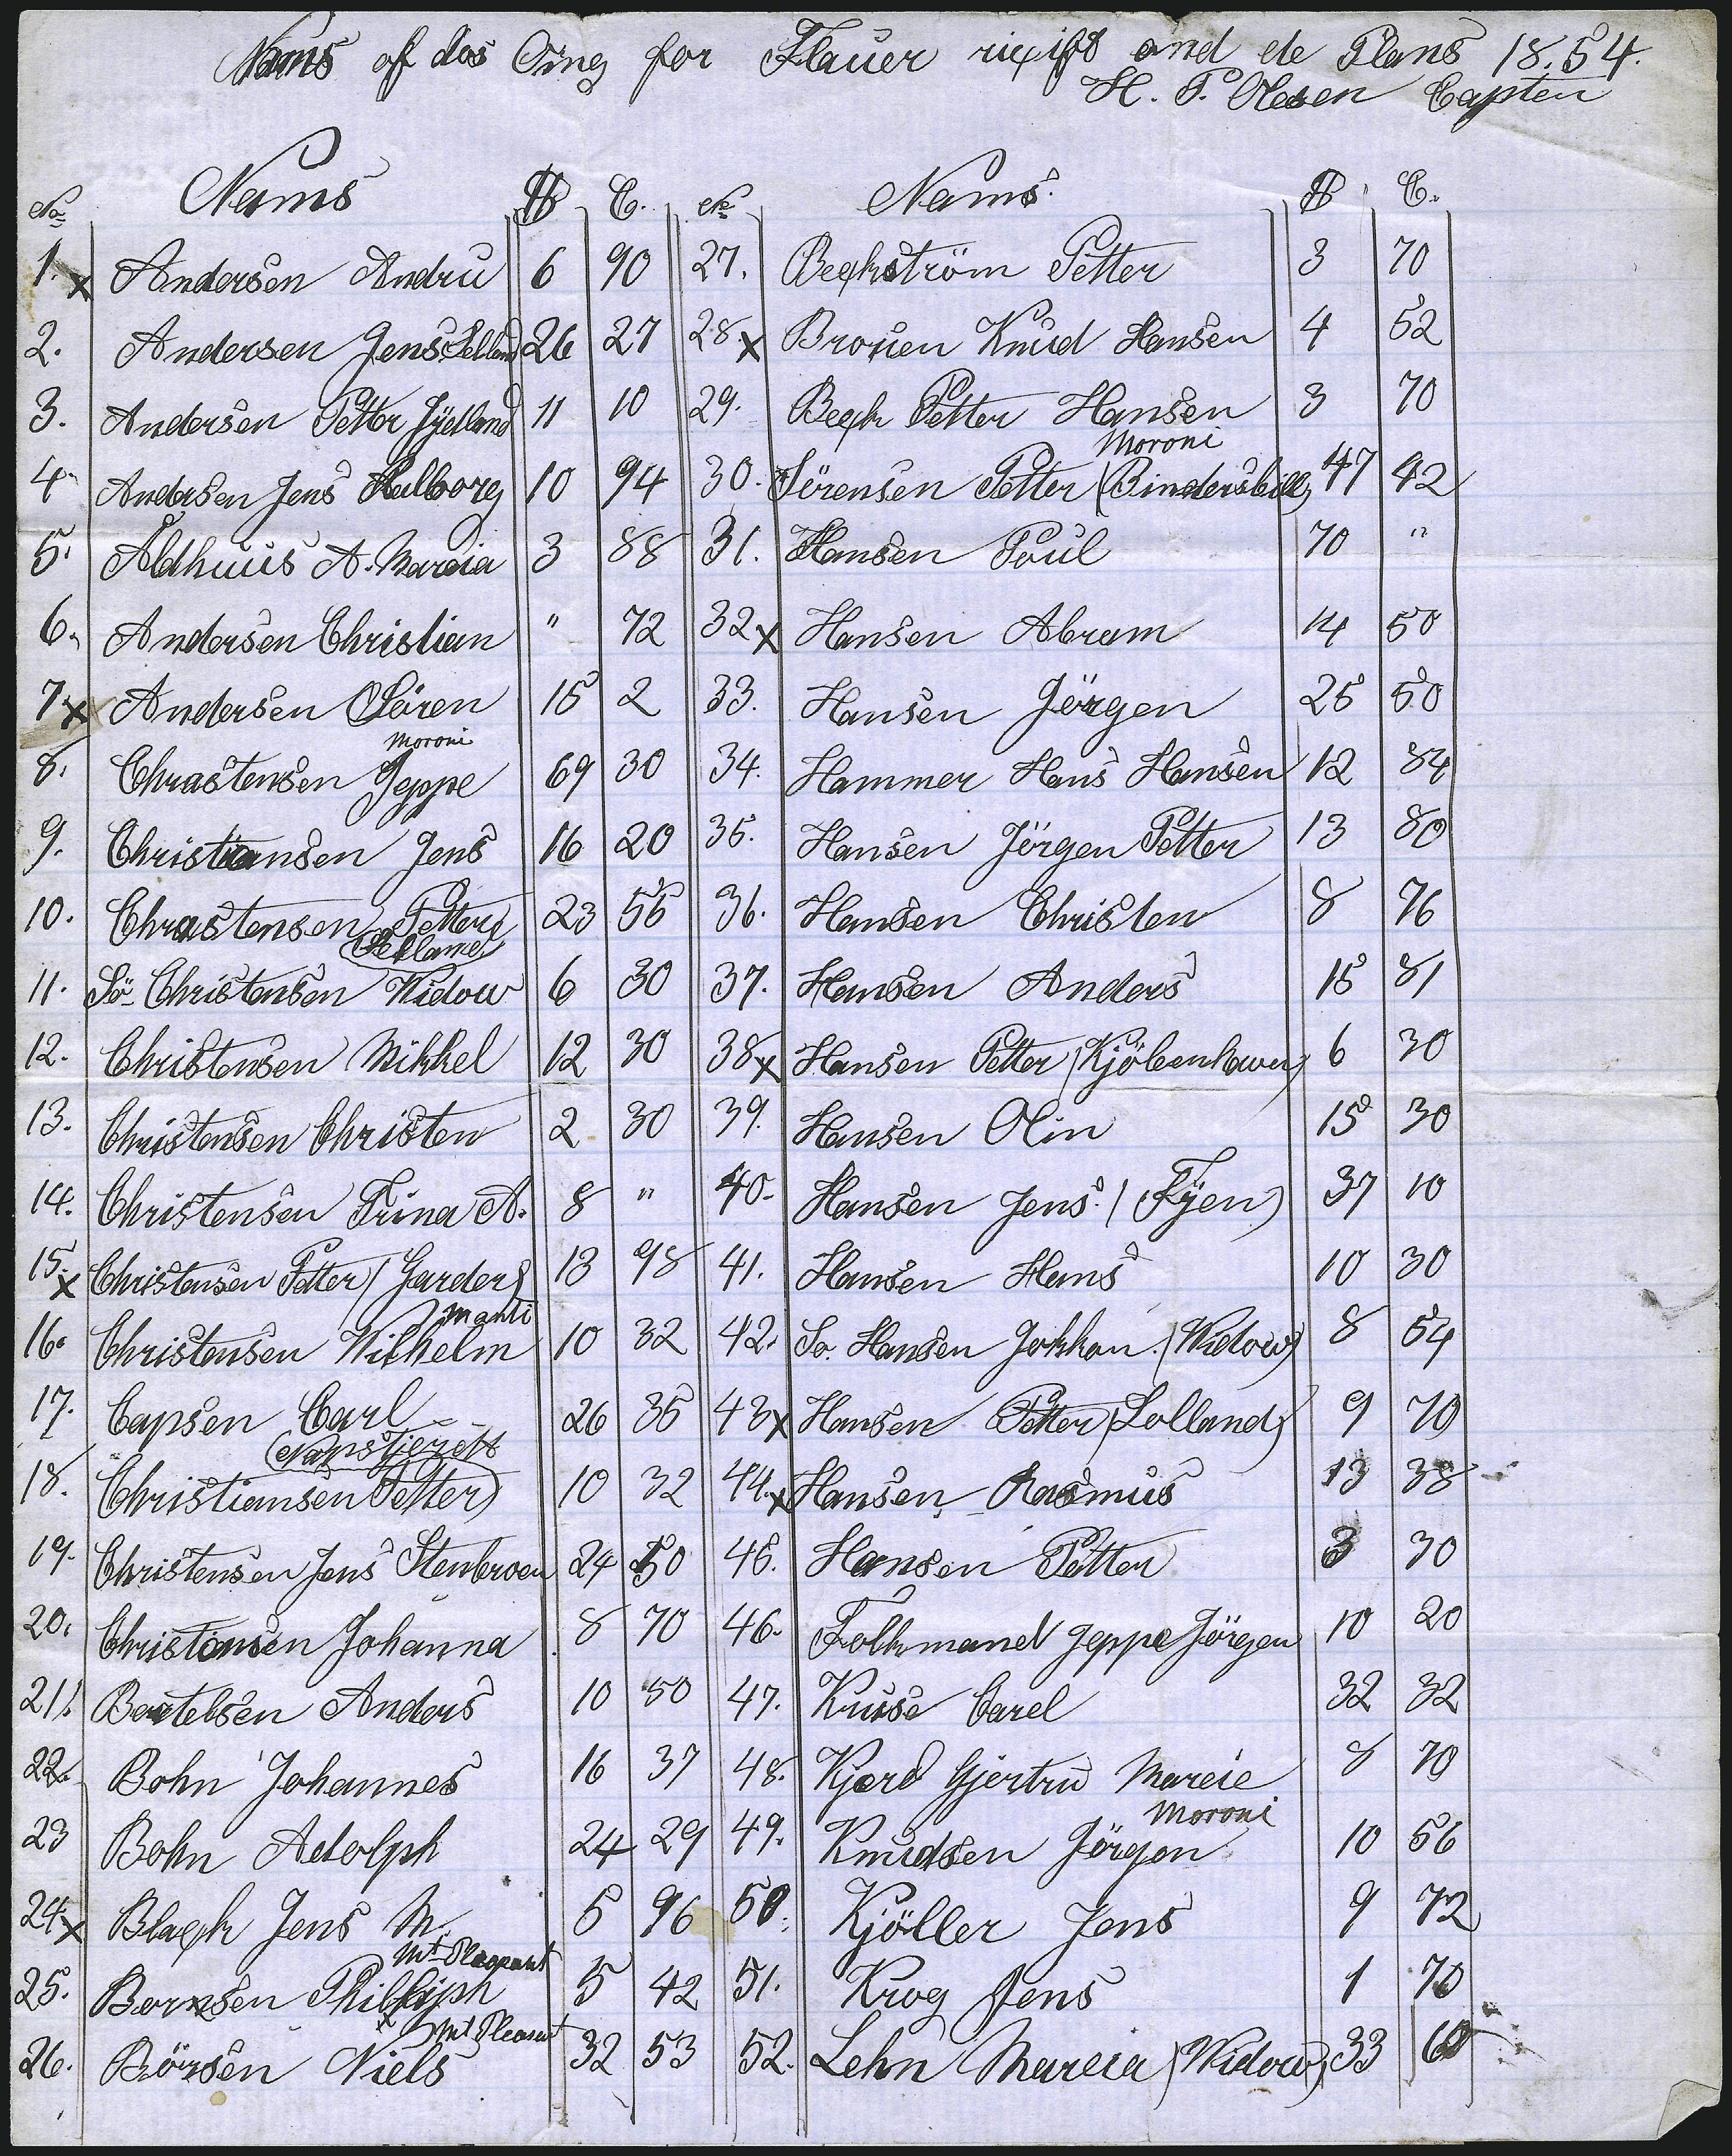 Nams of dos Oing for Flauer ricift and de Plans 18.54.
H. P. Olesen Capten
No Nams $ C. No Nams $ C.
1. x Andersen Andru 6 90 27. Beghström Petter 3 70
2. Andersen Jens Selland 26 27 28. x Brouen Knud Hansen 4 52
3. Andersen Petter Jÿetland 11 10 29. Begh Petter Hansen 3 70
Moroni
4. Andersen Jens Aalborg 10 94 30. Sörensen Petter (Bindersbill) 47 42
5. Aldhuus A. Mareia 3 88 31. Hansen Poul 70 "
6. Andersen Christian " 72 32 x Hansen Abram 14 50
7 x Andersen Sören 15 2 33. Hansen Jörgen 25 50
Moroni
8. Chrastensen Jeppe 69 30 34. Hammer Hans Hansen 12 84
9. Christiansen Jens 16 20 35. Hansen Jörgen Petter 13 80
10. Chrastensen Petter 23 55 36. Hansen Christen 8 76
(Selland)
11. Sö. Christensen Widow 6 30 37. Hansen Anders 15 81
12. Christensen Mikkel 12 30 38 x Hansen Petter (Kjöbenhaven) 6 30
13. Christensen Christen 2 30 39. Hansen Olin 15 30
14. Christensen Trina A. 8 " 40. Hansen Jens. (Fÿen) 37 10
15. x Christensen Petter (Garder) 13 98 41. Hansen Hans 10 30
Manti
16. Christensen Wilhelm 10 32 42. So. Hansen Johhan. (Widow) 8 54
17. Capsen Carl 26 35 43 x Hansen Petter (Lolland) 9 70
18. Christiansen Petter) 10 32 44. x Hansen Rasmus 13 38
19. Christensen Jens Stenbroen 24 50 45. Hansen Petter 3 30
20. Christansen Johanna 8 70 46. Folkmand Jeppe Jörgen 10 20
21. Bertelsen Anders 10 50 47. Kruse Carel 32 32
22. Bohn Johannes 16 37 48. Kjerd Gjertru Mareie 8 70
Moroni
23 Bohn Adolph 24 29 49. Knudsen Jörgen 10 56
24. x Blagh Jens M. 5 96 50. Kjöller Jens 9 72
Mt Pleasant
25. Bornsen Phillip 5 42 51. Krog Jens 1 70
x Mt Pleasant
26. Börsen Niels 32 53 52. Lehn Mareia (Widow) 33 60